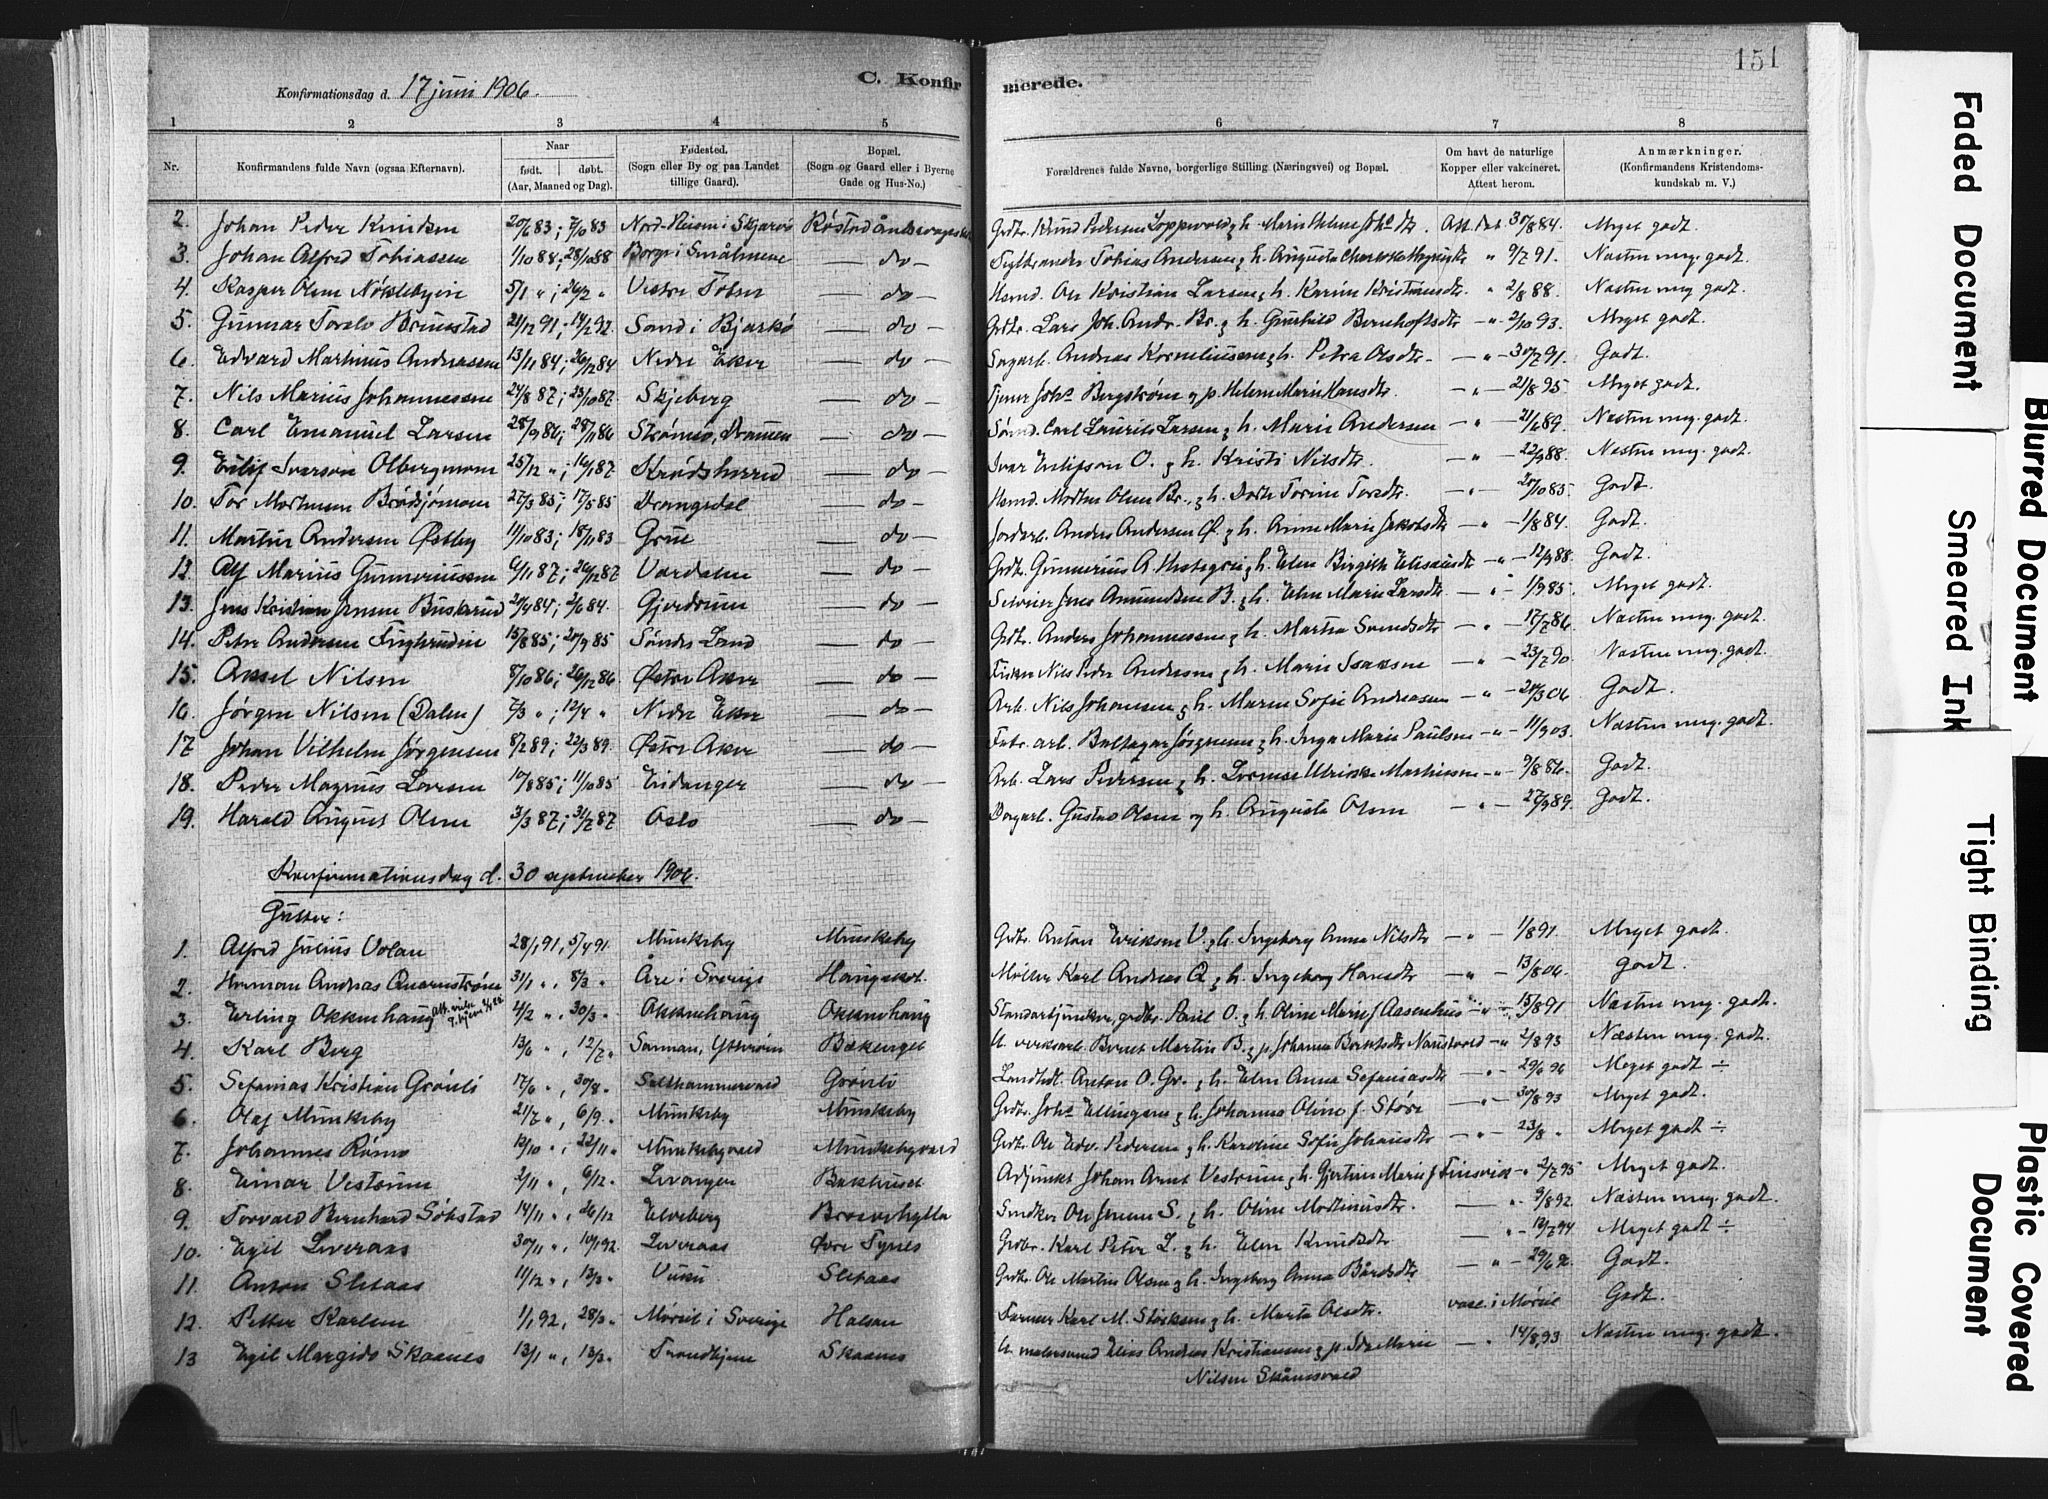 Konfirmationsdag d. 17 juni 1906.
C. Konfirmerede.
151
1 2 3 4 5 6 7 8
Nr. Konfirmandens fulde Navn (ogsaa Efternavn). Naar født. døbt. (Aar, Maaned og Dag). Fødested. (Sogn eller By og paa Landet tillige Gaard). Bopæl. (Sogn og Gaard eller i Byerne Gade og Hus-No.) Forældrenes fulde Navne, borgerlige Stilling (Næringsvei) og Bopæl. Om havt de naturlige Kopper eller vakcineret. Attest herom. Anmærkninger. (Konfirmandens Kristendomskundskab m. V.)
2. Johan Peder Knudsen 20/6 83; 7/10 83 Meget godt.
3. Johan Alfred Tobiassen 1/10 88; 28/10 88 Borge i Smålenene — do — Tobias Andersen & h. Augusta " 9/7 91. Næsten meg. godt.
4. Kasper Olsen Nøklebyeie 5/1 "; 26/2 " Vestre Toten — do — Ole Kristian Larsen & h. Karine Kristiansdtr. " 2/8 88. Næsten meg godt.
5. Gunnar Torolv Brunstad 21/12 91; 14/2 92. Sand i Bjarkø — do — Grdbr. Lars Joh. Andr. Br. & h. Gunhild Bernhoftsdtr — " 2/10 93. Meget godt.
6. Edvard Martinus Andreassen 13/11 84; 26/12 84 Nedre Eker — do — Andreas Korneliussen & h. Petra Olsdtr — " — 30/7 91. Godt.
7. Nils Marius Johannessen 24/8 87; 23/10 87. Skjeberg — do — Tjener Johs Bergstrøm og p. Helene Marie Hansdtr. — " — 21/8 95 Meget godt.
8. Carl Emanuel Larsen 28/9 86; 28/11 86 Strømsø, Drammen — do — Carl Laurits Larsen & h. Marie Andersen — " — 21/6 89. Næsten meg. godt.
9. Eilif Iversen Olbergmoen 25/12 "; 16/1 87 Krødsherred — do — Ivar Eilifson O. & h. Kristi Nilsdtr. — " — 22/9 88. Næsten meg. godt.
10. Tor Mortensen 27/3 85; 17/5 85 Drangedal — do — Morten Olsen Br., & h. Dorte Torine Torsdtr. — " — 20/10 85. Godt.
11. Martin Andersen Østby 11/10 83; 18/11 83 Grue — do — Jordarb. Anders Andersen Ø. & h. Anne Marie Jakobsdtr — " — 1/8 84. Godt.
12. Alf Marius Gunneriussen 6/11 87; 26/12 87 Værdalen — do — Grdbr. Gunnerius A. & h. Elen Birgitte — " — 12/9 88. Godt.
13. Jens Kristian Jensen Busterud 20/4 84; 2/6 84. Gjerdrum — do — Jens Amundsen B. & h. Elen Marie Larsdtr — " — 1/9 85. Meget godt.
14. Peter Andersen 15/8 85; 20/9 85 Søndre Land — do — Grdbr. Anders Johannessen & h. Marthea Svendsdtr — " — 17/7 86. Næsten meg. godt.
15. Aksel Nilsen 8/10 86; 26/12 86. Østre Aker — do — Fisker Nils Peder Andersen & h. Marie Isaksen — " — 23/7 90 Næsten meg. godt.
16. Jørgen Nilsen (Dalen) 7/3 "; 12/4 " Nedre Eker — do — Arb. Nils Johansen & h. Maren Sofie Andreasen — " — 20/3 06 Godt.
17 Johan Vilhelm Jørgensen 8/2 89; 22/3 89. Østre Aker — do — Fabr. arb. Baltazar Jørgensen & h. Inga Marie Paulsen — " — 11/9 03. Næsten meg. godt.
18. Peder Magnus Larsen 10/8 85; 11/10 85 Eidanger — do — Arb. Lars Pedersen & h. Lovense Ulrikke Mathissen — " — 9/8 86. Godt.
19. Harald August Olsen 3/3 87; 31/7 87 Oslo — do — Dagarb. Gustav Olsen og h. Augusta Olsen — " — 27/9 89. Godt.
Konfirmationsdag d. 30 september 1906.
Gutter:
1. Alfred Julius Volan 28/1 91, 5/4 91. Munkeby Munkeby Grdbr. Anton Eriksen V. & h. Ingeborg Anna Nilsdtr — " — 1/8 91. Meget godt.
2. Herman Andreas Quarnstrøm 31/1 ", 8/3 " Åre i Sverige Haugskot. Møller Karl Andreas Q & h. Ingeborg Hansdtr — " — 13/8 06. Godt.
3. Erling Okkenhaug 4/2 ", 30/3 " Okkenhaug Okkenhaug Standartjunker, grdbr. Paul O. & h. Oline Marie f. Aasenhus " 15/8 91 Næsten meg. godt.
4. Karl Berg 13/6 ", 12/7 " Sannan, Ytterøen Bækenget Bernt Martin B. & p. Johanna Naustvold " 2/8 93 Næsten meg. godt.
5. Sefanias Kristian Grønli 17/6 ", 30/8 " Salthammervald Grønli Landhdl. Anton O. Gr. & h. Elen Anna Sefaniasdtr — " — 29/6 96 Meget godt ÷
6. Olaf Munkeby 21/7 ", 6/9. " Munkeby Munkeby Grdbr. Johs Ellingsen & h. Johanna Oline f. Støre — " — 30/8 93 Meget godt.
7. Johannes Rømo 12/10 ", 22/11 " Munkebyvald Munkebyvald Grdbr. Ole Edv. Pedersen & h. Karoline Sofie Johansdtr — " — 23/8 " Meget godt ÷
8. Einar Vestrum 2/11 ", 6/12 " Levanger Bakhuset Adjunkt Johan Arnt Vestrum & h. Gjertine Marie f. Finsvik " 2/7 95 Meget godt.
9. Torvald Bernhard Søkstad 14/11 ", 26/12 Elveberg Snedker Ole Jensen S. & h. Oline Mortinusdtr. — " 9/8 92. Næsten meg. godt.
10. Egil Leveraas 30/11 ", 10/1 92. Leveraas Øvre Tynes Grdbr. Karl Peter L. & h. Elen Knudsdtr — " — 12/7 94 Meget godt ÷
11. Anton Sletaas 11/12 ", 13/3 " Vuku Sletaas Grdbr. Ole Martin Olsen & h. Ingeborg Anna Bårdsdtr — " — 29/6 92. Godt.
12. Petter Karlsen 1/1 92, 28/3 " Mørsil i Sverige Halsan Karl M. & h. Marta Olsdtr. vacc. i Mørsil Godt.
13 Egil Margido Skaanes 13/1 ", 13/3 " Trondhjem Skaanes Elias Andreas Kristiansen & p. Ida Marie — " 14/8 93 Næsten meg. godt.
Nilsen Skånesvald
Faded Document
Smeared Ink
Tight Binding
Blurred Document
Plastic Covered Document